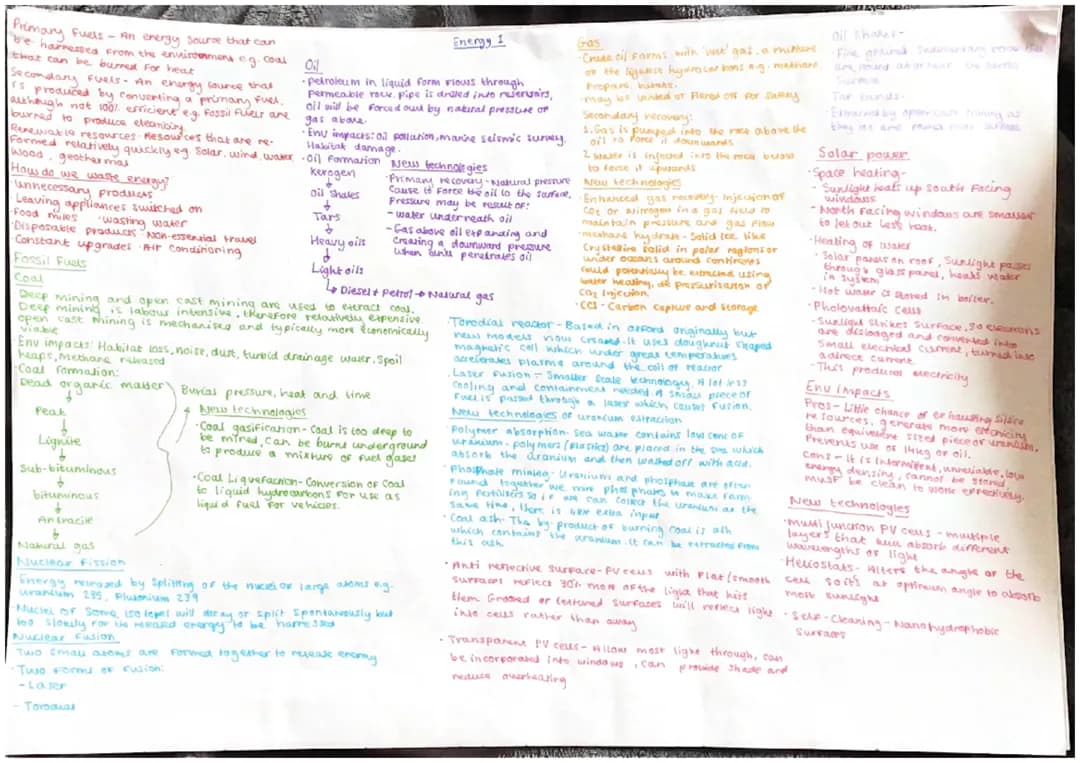 Energy 1
Primary Fuels - An energy source that can
be harnessed from the environment e.g. coal
that can be burned for heat
Secondary Fuels - An energy source that
is produced by converting a primary fuel,
although not 100% efficient e.g. Fossil Fuels are
burned to produce elecricity
Renewable resources - Resources that are re-
formed relatively quickly e.g. Solar, wind, water
Wood, geothermal
How do we waste energy?
· Unnecessary products
Leaving appliances switched on
· Food miles · wasting water
Disposable products Non-essential travel
Constant upgrades · Air conditioning
Fossil Fuels
Coal
Deep mining and open cast mining are used to extract coal.
Deep mining is labour intensive, therefore relatively expensive.
open cast mining is mechanised and typically more economically
viable
Env impacts: Habitat loss, noise, dust, turbid drainage water, spoil
heaps, Methane released
· Coal formation:
Dead organic matter
Peat
Lignite
Sub-bituminous
bituminous
Antracite
Natural gas
Burial pressure, heat and time
New technologies
· Coal gasification - Coal is too deep to
be mined, can be burnt underground
to produce a mixture of fuel gases
· Coal Liquefaction - Conversion of Coal
to liquid hydrocarbons for use as
liquid fuel for vehicles.
Nuclear Fission
Energy released by splitting of the nuclei of large atoms e.g.
uranium 235, Plutonium 239
· Nuclei of some isotopes will decay or split spontaneously but
too slowly for the released energy to be harnessed
Nuclear Fusion
Two small atoms are formed together to release energy
· Two forms of fusion:
- Laser
- Torodial
Oil
· Petroleum in liquid form flows through
permeable rock. Pipe is drilled into reservoirs,
oil will be forced out by natural pressure of
gas above.
· Env impacts: oil pollution, marine seismic survey,
Habitat damage.
· Oil formation
Kerogen
Oil Shales
Tars
Heavy oils
Light oils
Diesel + Petrol → Natural gas
New technologies
· Primary recovery - Natural pressure
Cause to force the oil to the surface.
Pressure may be result of:
- water underneath oil
- Gas above oil expanding and
creating a downward pressure
when penetrates oil
Gas
· Crude oil forms with 'wet' gas, a mixture
of the lightest hydrocarbons e.g. methane
Propane, butane.
· May be vented or flared off for safety
Secondary recovery:
1. Gas is pumped into the rock above the
oil to force it downwards
2. Water is injected into the rock below
to force it upwards
New technologies
· Enhanced gas recovery - Injection of
CO2 or Nitrogen in a gas field to
maintain pressure and gas flow
· methane hydrate - Solid ice like
crystalline solid in polar regions or
under oceans around continents
could potentially be extracted using
water heating, de pressurisation or
CO2 injection.
· CCS - Carbon Capture and Storage
Torodial reactor - Based in oxford originally but
new models now created. It uses doughnut shaped
magnetic cell which under great temperatures
accelerates plasma around the coil of reactor
· Laser fusion - Smaller scale technology. A lot less
cooling and containment needed. A small piece of
fuel is passed through a laser which causes fusion.
New technologies of uranium extraction
· Polymer absorption - Sea water contains low conc of
uranium - polymers (plastics) are placed in the sea which
absorb the uranium and then washed off with acid.
· Phosphate mining - Uranium and phosphate are often
found together we mine phosphates to make farm-
ing fertilisers so if we can collect the uranium at the
same time, there is little extra input
· Coal ash - The by-product of burning coal is ash
which contains the uranium. It can be extracted from
this ash.
· Anti reflective surface - PV cells with flat/smooth
surfaces reflect 30% more of the light that hits
them Grooved or textured surfaces will reflect light
into cells rather than away
· Transparent PV cells - Allow most light through, can
be incorporated into windows, can provide shade and
reduce overheating
Oil Shales -
· Fine grained Sedimentary rocks that
are found at or near the earths
surface
Tar Sands -
Extracted by open cast mining as
they are found near surface
Solar power
· Space heating -
- Sunlight heats up South Facing
windows
- North Facing windows are smaller
to let out less heat.
· Heating of water
- Solar panels on roof, Sunlight passes
through glass panel, heats water
in system
- Hot water is stored in boiler.
· Photovoltaic cells
- Sunlight strikes surface, so electrons
are dislodged and converted into
small electrical current, turned into
a direct current.
- This produces electricity
Env Impacts
Pros - Little chance of exhausting silicon
resources, generate more electricity
than equivalent sized piece of uranium,
Prevents use of 1.4kg of oil.
Cons - It is Intermittent, unreliable, low
energy density, cannot be stored,
must be clean to work effectively.
New technologies
· Multi junction PV cells - multiple
layers that will absorb different
wavelengths of light
· Heliostats - Alters the angle of the
cell so its at optimum angle to absorb
most sunlight
· Self-Cleaning - Nanohydrophobic
Surfaces